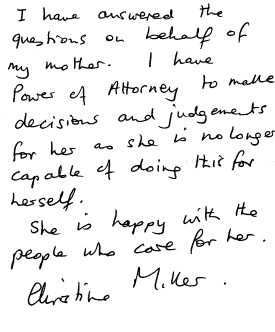 I have answered the
questions on behalf of
my mother. I have
Power of Attorney to make
decisions and judgements
for her as she is no longer
capable of doing this for
herself.
She is happy with the
people who care for her.
Christine Miller.